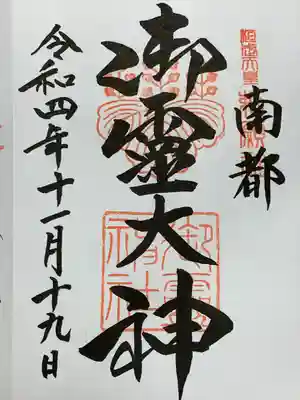 南都
御靈大神
令和四年十一月十九日
御霊神社